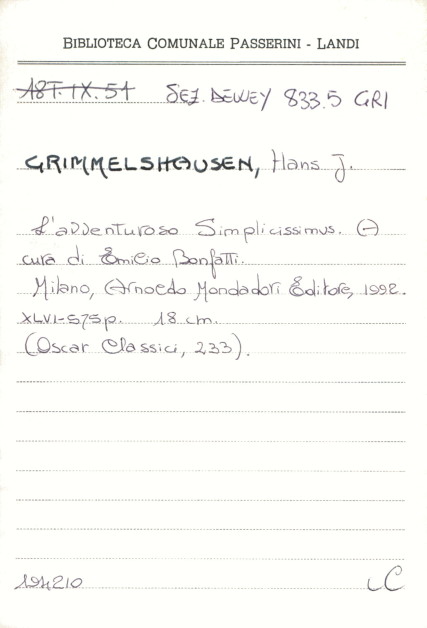 BIBLIOTECA COMUNALE PASSERINI - LANDI
18T.IX.51 SEZ. DEWEY 833.5 GRI
GRIMMELSHAUSEN, Hans J.
L'avventuroso Simplicissimus. A
cura di Emilio Bonfatti.
Milano, Arnoldo Mondadori Editore, 1992.
XLVI-575p. 18 cm.
(Oscar Classici, 233).
194210 LC